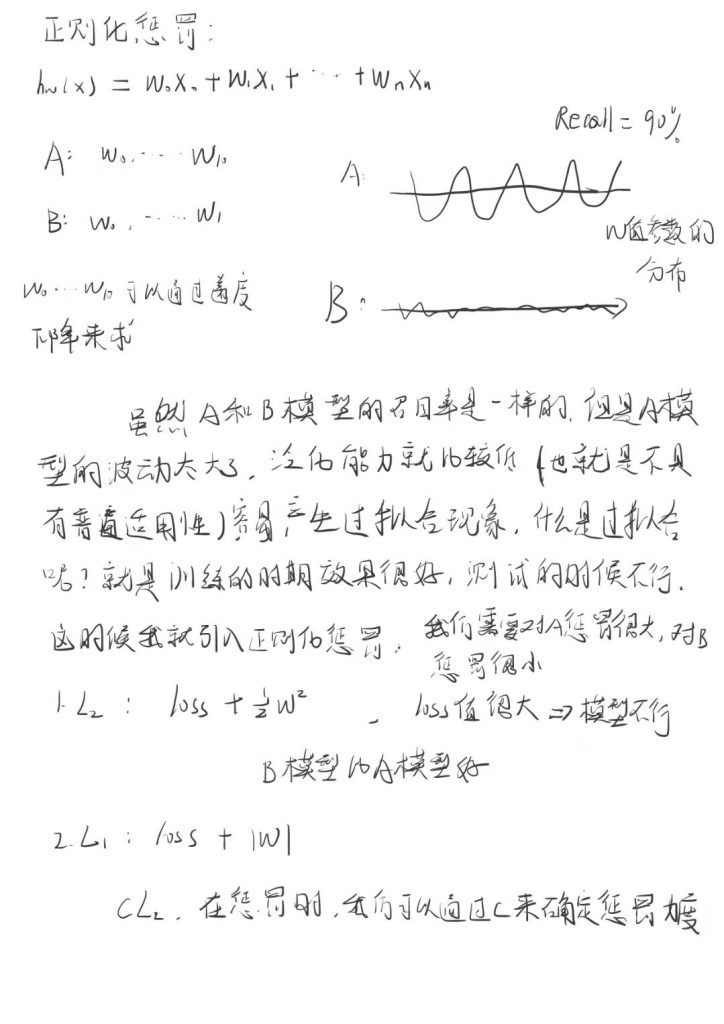 正则化惩罚:
hw(x) = W₀X₀ + W₁X₁ + ··· + WnXn
Recall = 90%
A: W₀, ···· W₁₀
A:
B: W₀, ····· W₁
W值参数的
分布
W₀ ··· W₁₀ 可以通过梯度
下降来求
B:
虽然 A和B模型的召回率是一样的, 但是A模
型的波动太大了, 泛化能力就比较低 (也就是不具
有普遍适用性) 容易产生过拟合现象, 什么是过拟合
呢? 就是训练的时期效果很好, 测试的时候不行.
这时候我就引入正则化惩罚, 我们需要对A惩罚很大, 对B
惩罚很小
1. L₂ : loss + ½W² , loss值很大 => 模型不行
B模型比A模型好
2. L₁ : loss + |W|
CL₂, 在惩罚时, 我们可以通过C来确定惩罚力度